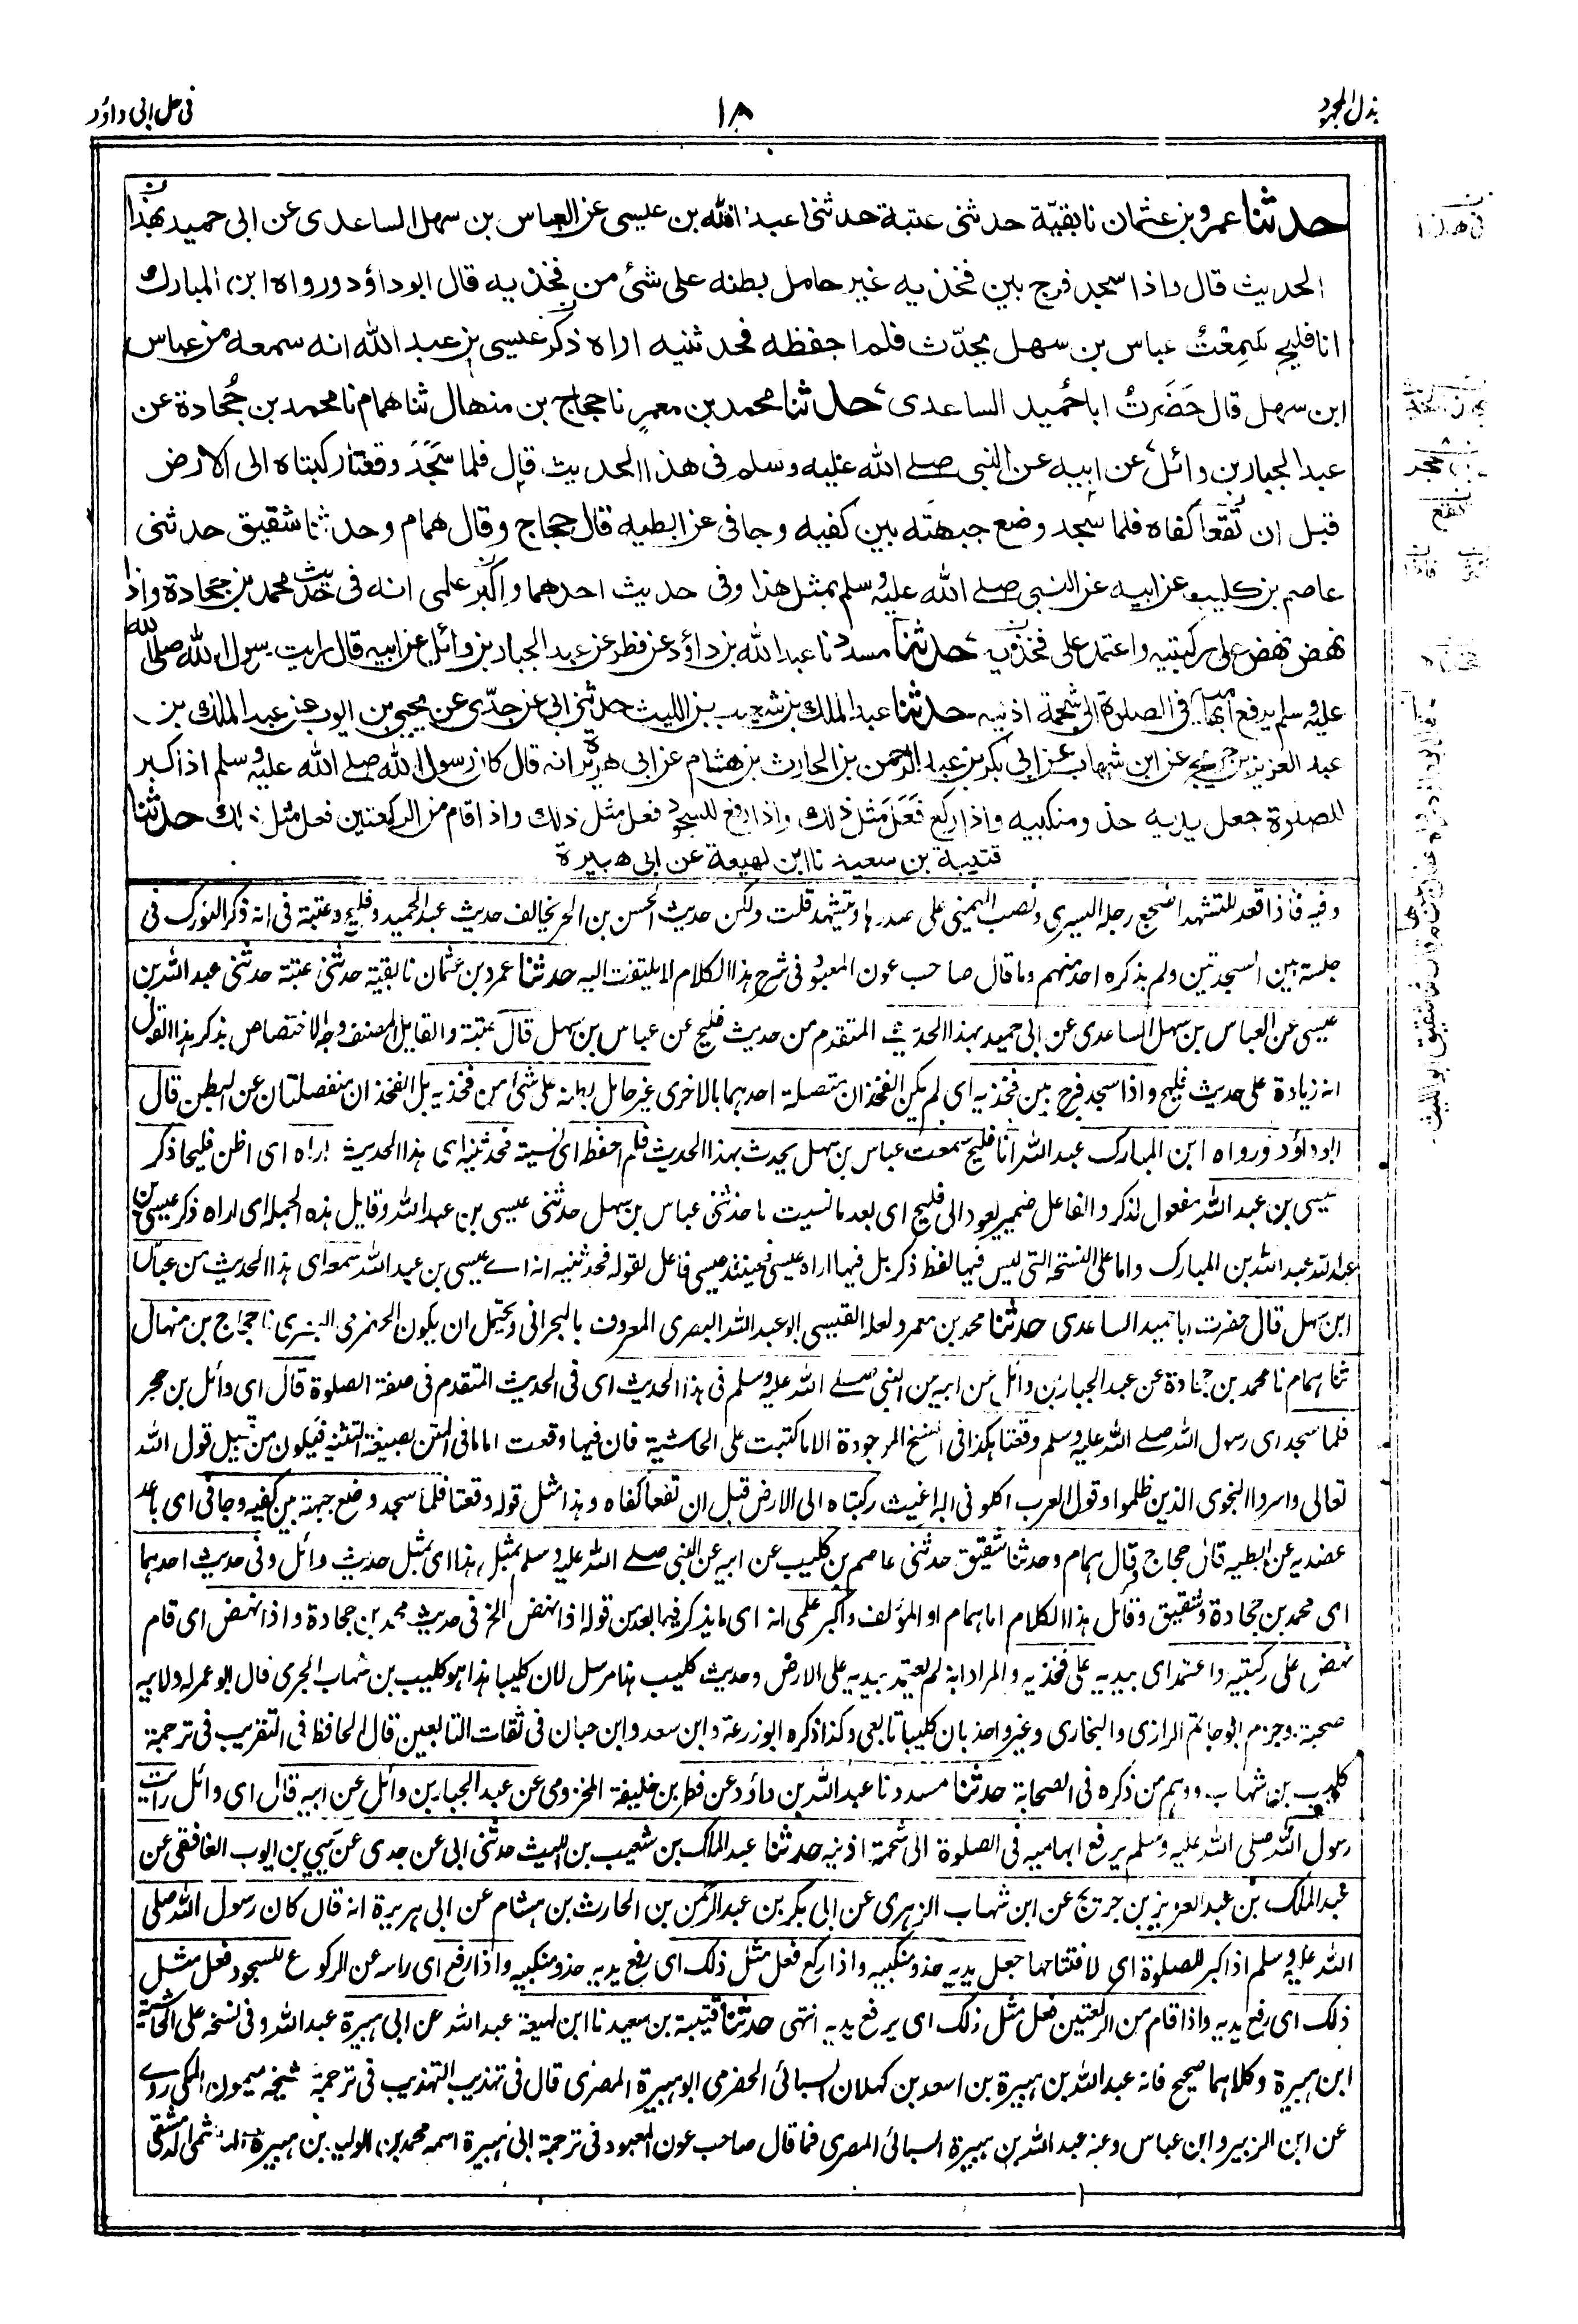 بذل المجهود
١٨
فى حل ابى داؤد
حدثنا عمرو بن عثمان نا بقيّة حدثنى عتبة حدثنى عبد الله بن عيسى عن العباس بن سهل الساعدى عن ابى حميد بهذا
الحديث قال واذا سجد فرج بين فخذيه غير حامل بطنه على شئ من فخذيه قال ابو داؤد ورواه ابن المبارك
انا فليح سَمِعْتُ عباس بن سهل يحدّث فلم احفظه فحدثنيه اراه ذكر عيسى بن عبد الله انه سمعه من عباس
ابن سهل قال حَضَرتُ ابا حُميد الساعدى حدثنا محمد بن معمر نا حجاج بن منهال ثنا همام نا محمد بن جُحادة عن
عبد الجبار بن وائل عن ابيه عن النبى صلے الله عليه وسلم فى هذا الحديث قال فلما سَجَدَ وقعتا ركبتاه الى الارض
قبل ان تقعا كفاه فلما سجد وضع جبهته بين كفيه وجافى عن ابطيه قال حجاج وقال همام وحدثنا شقيق حدثنى
عاصم بن كليب عن ابيه عن النبى صلے الله عليه وسلم بمثل هذا وفى حديث احدهما واكبر علمى انه فى حديث محمد بن جحادة واذا
نهض نهض على ركبتيه واعتمد على فخذيه حدثنا مسدد نا عبد الله بن داؤد عن فطر عن عبد الجبار بن وائل عن ابيه قال رايت رسول الله صلى الله
عليه وسلم يرفع ابهاميه فى الصلوة الى شحمة اذنيه حدثنا عبد الملك بن شعيب بن الليث حدثنى ابى عن جدّى عن يحيى بن ايوب عن عبد الملك بن
عبد العزيز بن جريج عن ابن شهاب عن ابى بكر بن عبد الرحمن بن الحارث بن هشام عن ابى هريرة انه قال كان رسول الله صلے الله عليه وسلم اذا كبر
للصلوة جعل يديه حذو منكبيه واذا ركع فَعَلَ مثل ذلك واذا رفع للسجود فعل مثل ذلك واذا قام من الركعتين فعل مثل ذلك حدثنا
قتيبة بن سعيد نا ابن لهيعة عن ابى هبيرة
وفيه فاذا قعد للتشهد اضجع رجله اليسرى ونصب اليمنى على صدرها ويتشهد قلت ولكن حديث الحسن بن الحر يخالف حديث عبد الحميد وفليح وعتبة فى انه ذكر التورك فى
جلسة بين السجدتين ولم يذكره احد منهم وما قال صاحب عون المعبود فى شرح هذا الكلام لا يلتفت اليه حدثنا عمرو بن عثمان نا بقية حدثنى عتبة حدثنى عبد الله بن
عيسى عن العباس بن سهل الساعدى عن ابى حميد بهذا الحديث المتقدم من حديث فليح عن عباس بن سهل قال عتبة والقايل المصنف وجه الاختصاص بذكر هذا القول
انه زيادة على حديث فليح واذا سجد فرج بين فخذيه اى لم يكن الفخذان متصلة احدهما بالاخرى غير حامل بطنه على شئ من فخذيه بل الفخذان منفصلتان عن البطن قال
ابو داؤد ورواه ابن المبارك عبد الله انا فليح سمعت عباس بن سهل يحدث بهذا الحديث فلم احفظه اى نسيته فحدثنيه اى هذا الحديث اراه اى اظن فليحا ذكر
عيسى بن عبد الله مفعول لذكر والفاعل ضمير يعود الى فليح اى بعد ما نسيت ما حدثنى عباس بن سهل حدثنى عيسى بن عبد الله وقايل هذه الجملة اى اراه ذكر عيسى بن
عبد الله عبد الله بن المبارك واما على النسخة التى ليس فيها لفظ ذكر بل فيها اراه عيسى فحينئذ عيسى فاعل لقوله فحدثنيه انه اے عيسى بن عبد الله سمعه اى هذا الحديث من عباس
ابن سهل قال حضرت ابا حميد الساعدى حدثنا محمد بن معمر ولعله القيسى ابو عبد الله البصرى المعروف بالبحرانى ويحتمل ان يكون الحضرمى البصرى نا حجاج بن منهال
ثنا همام نا محمد بن جحادة عن عبد الجبار بن وائل عن ابيه عن النبى صلے الله عليه وسلم فى هذا الحديث اى فى الحديث المتقدم فى صفة الصلوة قال اى وائل بن حجر
فلما سجد اى رسول الله صلے الله عليه وسلم وقعتا هكذا فى النسخ الموجودة الا ما كتبت على الحاشية فان فيها وقعت اما ما فى المتن بصيغة التثنية فيكون من قبيل قول الله
تعالى واسروا النجوى الذين ظلموا وقول العرب اكلونى البراغيث ركبتاه الى الارض قبل ان تقعا كفاه وهذا مثل قوله وقعتا فلما سجد وضع جبهته بين كفيه وجافى اى باعد
عضديه عن ابطيه قال حجاج وقال همام وحدثنا شقيق حدثنى عاصم بن كليب عن ابيه عن النبى صلے الله عليه وسلم بمثل هذا اى بمثل حديث وائل وفى حديث احدهما
اى محمد بن جحادة وشقيق وقايل هذا الكلام اما همام او المؤلف واكبر علمى انه اى ما يذكر فيما بعد من قوله اذا نهض الخ فى حديث محمد بن جحادة واذا نهض اى قام
نهض على ركبتيه واعتمد اى بيديه على فخذيه والمراد انه لم يعتمد بيديه على الارض وحديث كليب هنا مرسل لان كليبا هذا هو كليب بن شهاب الجرمى قال ابو عمر له ولابيه
صحبة وجزم ابو حاتم الرازى والبخارى وغير واحد بان كليبا تابعى وكذا ذكره ابو زرعة وابن سعد وابن حبان فى ثقات التابعين قال الحافظ فى التقريب فى ترجمة
كليب بن شهاب ووهم من ذكره فى الصحابة حدثنا مسدد نا عبد الله بن داؤد عن فطر بن خليفة المخزومى عن عبد الجبار بن وائل عن ابيه قال اى وائل رايت
رسول الله صلى الله عليه وسلم يرفع ابهاميه فى الصلوة الى شحمة اذنيه حدثنا عبد الملك بن شعيب بن الليث حدثنى ابى عن جدى عن يحيى بن ايوب الغافقى عن
عبد الملك بن عبد العزيز بن جريج عن ابن شهاب الزهرى عن ابى بكر بن عبد الرحمن بن الحارث بن هشام عن ابى هريرة انه قال كان رسول الله صلى
الله عليه وسلم اذا كبر للصلوة اى لافتتاحها جعل يديه حذو منكبيه واذا ركع فعل مثل ذلك اى رفع يديه حذو منكبيه واذا رفع اى راسه عن الركوع للسجود فعل مثل
ذلك اى رفع يديه واذا قام من الركعتين فعل مثل ذلك اى يرفع يديه انتهى حدثنا قتيبة بن سعيد نا ابن لهيعة عبد الله عن ابى هبيرة عبد الله وفى نسخه على الحاشية
ابن هبيرة وكلاهما صحيح فانه عبد الله بن هبيرة بن اسعد بن كهلان السبائى الحضرمى ابو هبيرة المصرى قال فى تهذيب التهذيب فى ترجمة شيخه ميمون المكى روے
عن ابن الزبير وابن عباس وعنه عبد الله بن هبيرة السبائى المصرى فما قال صاحب عون المعبود فى ترجمة ابى هبيرة اسمه محمد بن الوليد بن هبيرة الدمشقى
فى هذا
بن حجر
تقع